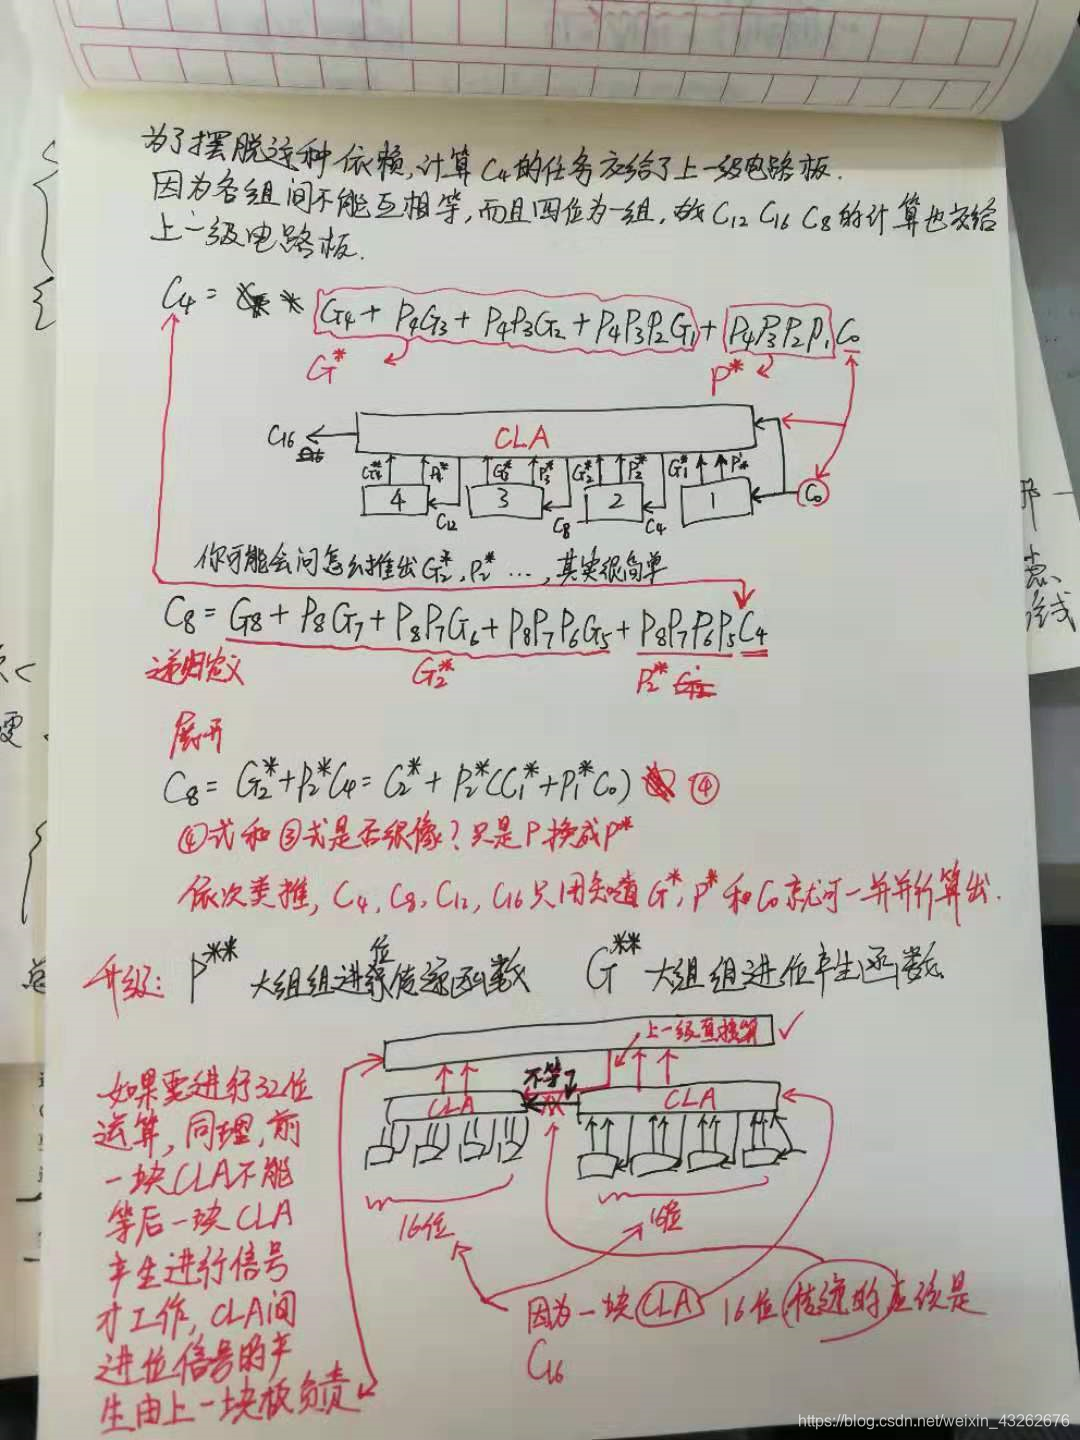 为了摆脱这种依赖,计算C4的任务交给了上一级电路板.
因为各组间不能互相等,而且四位为一组,故C12 C16 C8的计算也交给
上一级电路板.
C4 = G4 + P4G3 + P4P3G2 + P4P3P2G1 + P4P3P2P1C0
G* P*
CLA
C16
G4* P4* G3* P3* G2* P2* G1* P1*
4 3 2 1 C0
C12 C8 C4
你可能会问怎么推出G2*, P2* ..., 其实很简单
C8 = G8 + P8G7 + P8P7G6 + P8P7P6G5 + P8P7P6P5C4
递归定义 G2* P2*
展开
C8 = G2* + P2*C4 = G2* + P2*(G1* + P1*C0) ④
④式和③式是否很像?只是P换成P*
依次类推, C4, C8, C12, C16只用知道G*, P*和C0就可一并并行算出.
升级: P** 大组组进位传递函数 G** 大组组进位产生函数
上一级直接算 ✓
不等
CLA CLA
16位 16位
如果要进行32位
运算,同理,前
一块CLA不能
等后一块CLA
产生进行信号
才工作, CLA间
进位信号的产
生由上一块板负责
因为一块CLA 16位传递的应该是
C16
https://blog.csdn.net/weixin_43262676